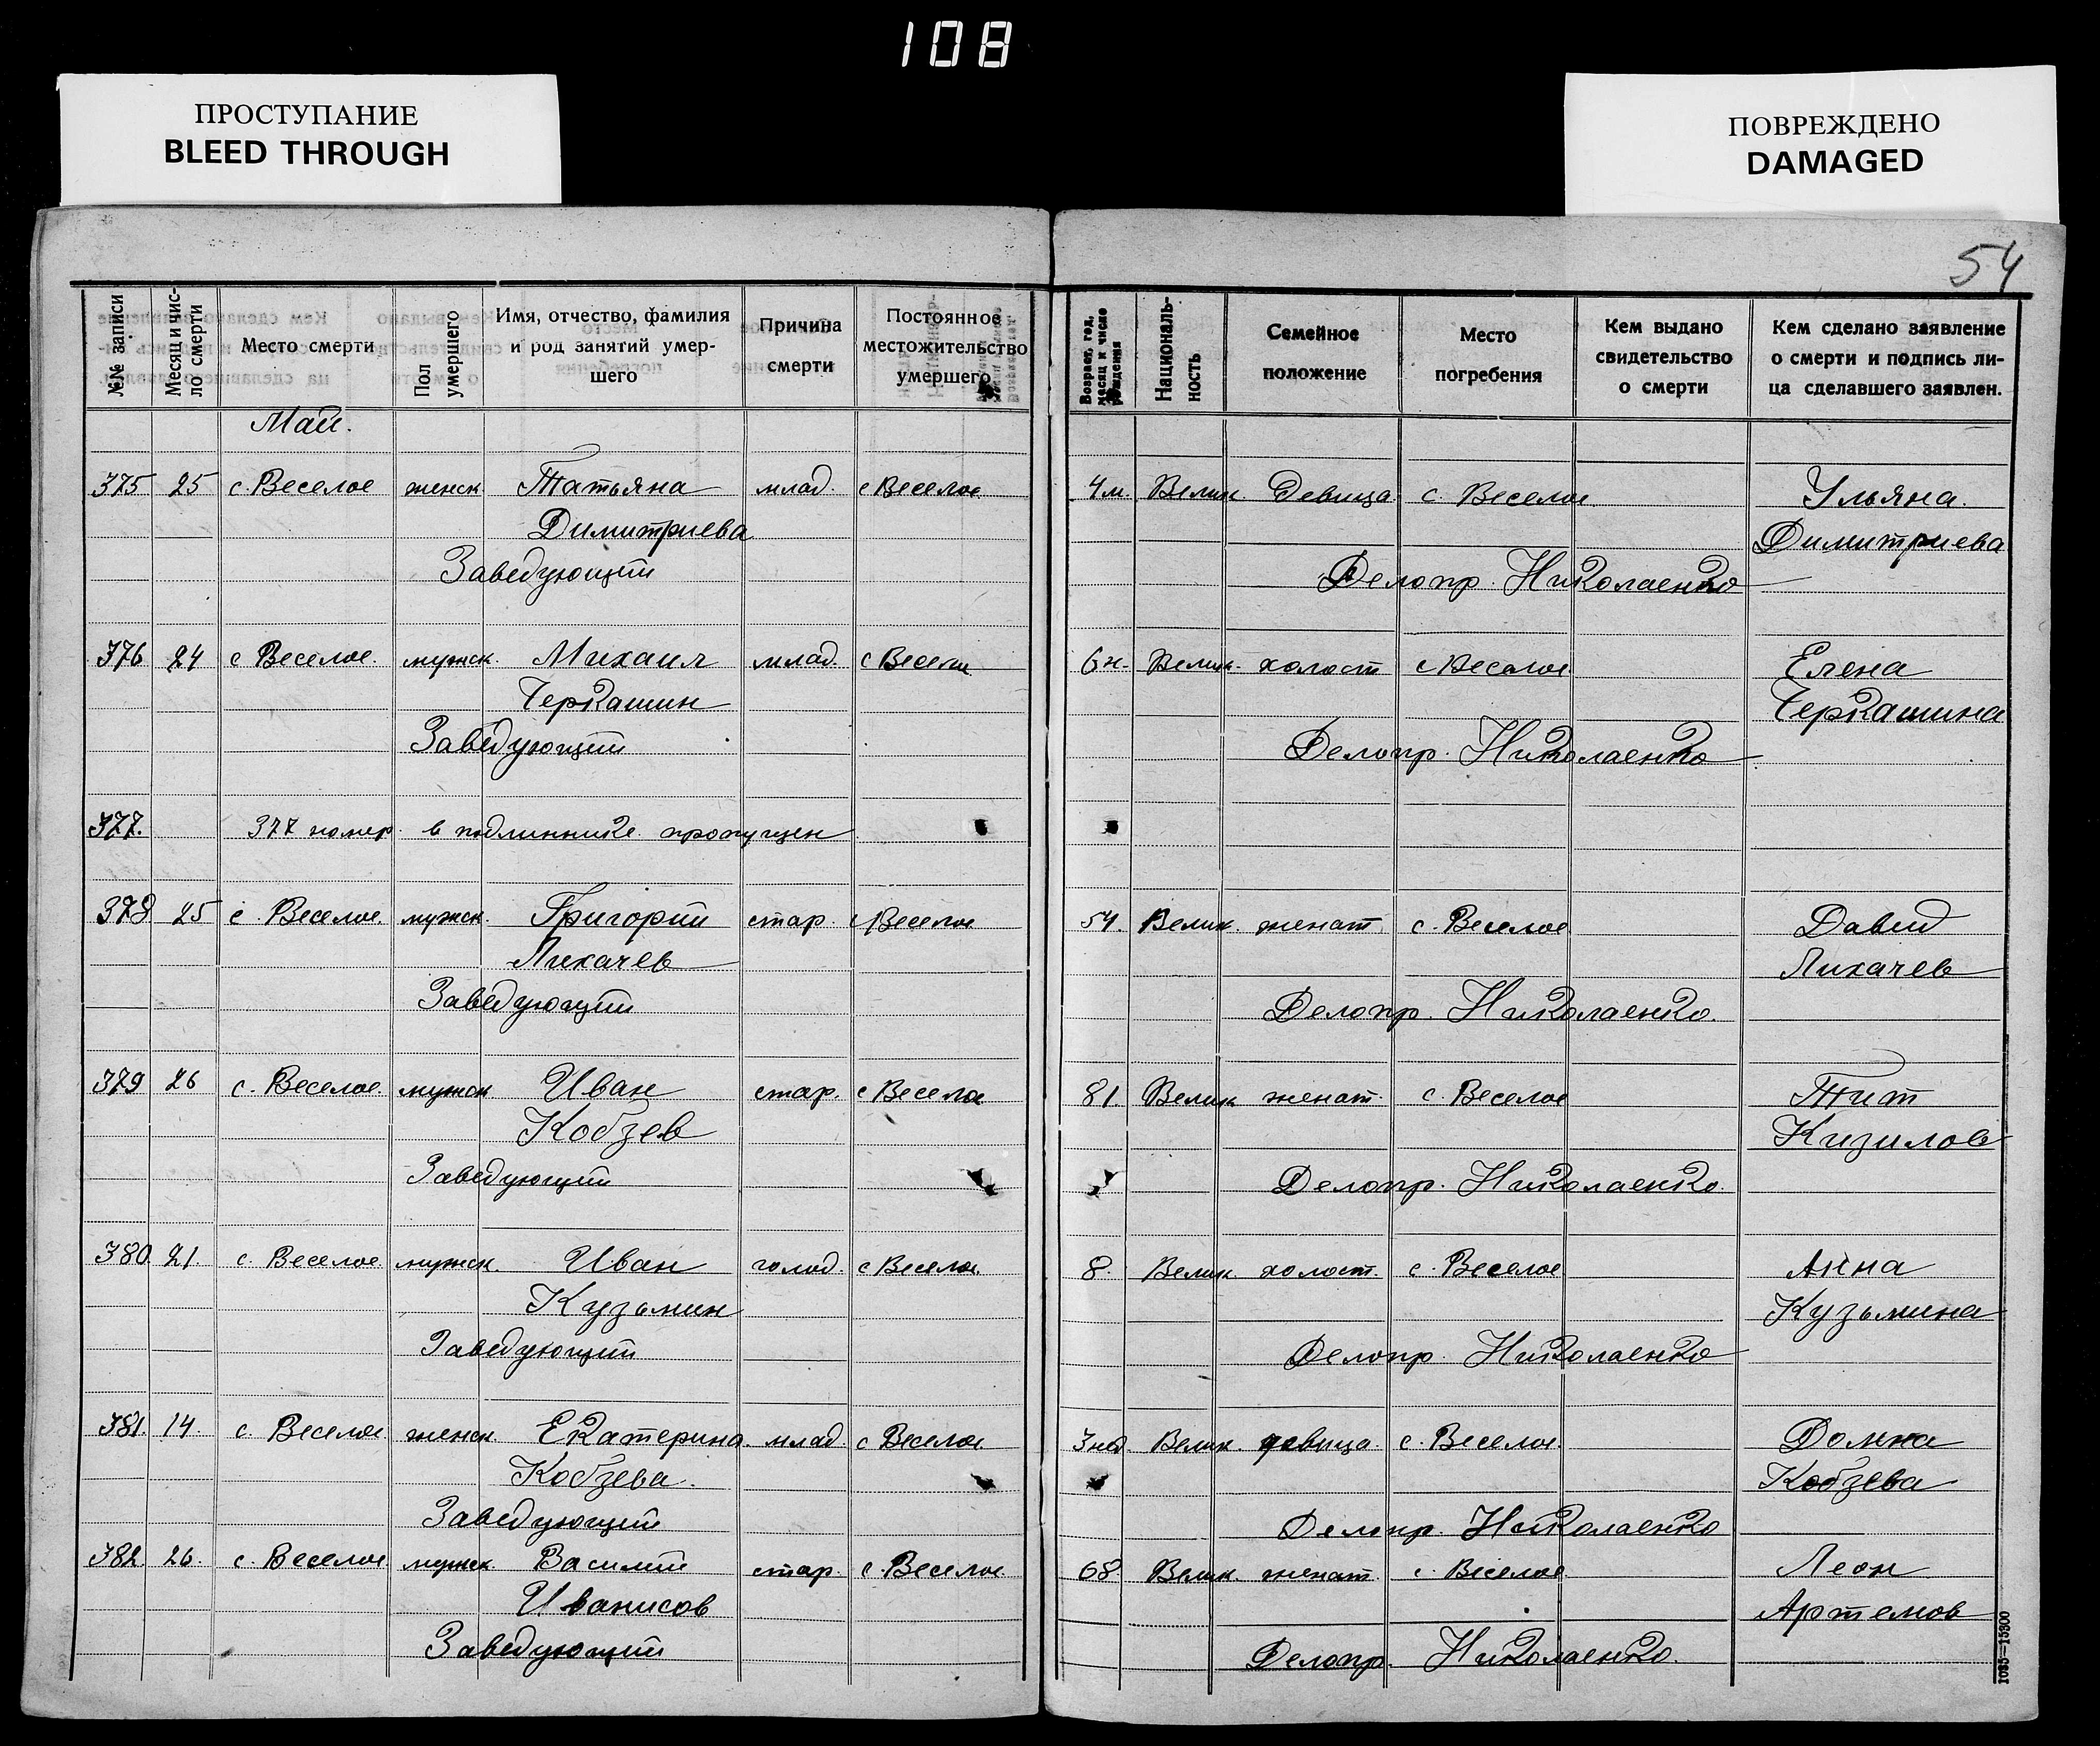 108
ПРОСТУПАНИЕ
BLEED THROUGH
ПОВРЕЖДЕНО
DAMAGED
54
№№ записи
Месяц и чис-
ло смерти
Место смерти
Пол
умершего
Имя, отчество, фамилия
и род занятий умер-
шего
Причина
смерти
Постоянное
местожительство
умершего
Возраст, год,
месяц и число
рождения
Националь-
ность
Семейное
положение
Место
погребения
Кем выдано
свидетельство
о смерти
Кем сделано заявление
о смерти и подпись ли-
ца сделавшего заявлен.
Май.
375 25 с. Веселое женск Татьяна млад. с Веселое 4 м. Велик Девица с. Веселое Ульяна.
Димитриева Димитриева
Заведующий Делопр. Николаенко
376 24 с Веселое. мужск. Михаил млад. с Веселое 6 н. Велик. холост с Веселое Елена
Черкашин Черкашина
Заведующий Делопр. Николаенко
377. 377 номер в подлиннике пропущен
378 25 с. Веселое. мужск. Григорий стар. с Веселое 54. Велик. женат с. Веселое Давид
Лихачев Лихачев
Заведующий Делопр. Николаенко.
379 26 с. Веселое. мужск Иван стар. с Веселое 81. Велик женат. с. Веселое Тит
Кобзев Кизилов
Заведующий Делопр. Николаенко.
380. 21. с. Веселое мужск. Иван голод. с Веселое. 8. Велик. холост. с. Веселое Анна
Кузьмин Кузьмина
Заведующий Делопр. Николаенко
381. 14. с. Веселое женск. Екатерина млад с Веселое. 3 нед Велик. девица. с. Веселое. Домна
Кобзева. Кобзева
Заведующий Делопр. Николаенко
382. 26. с. Веселое мужск. Василий стар. с. Веселое 68 Велик. женат. с. Веселое. Леон
Иванисов Артемов
Заведующий Делопр. Николаенко.
1085—15300